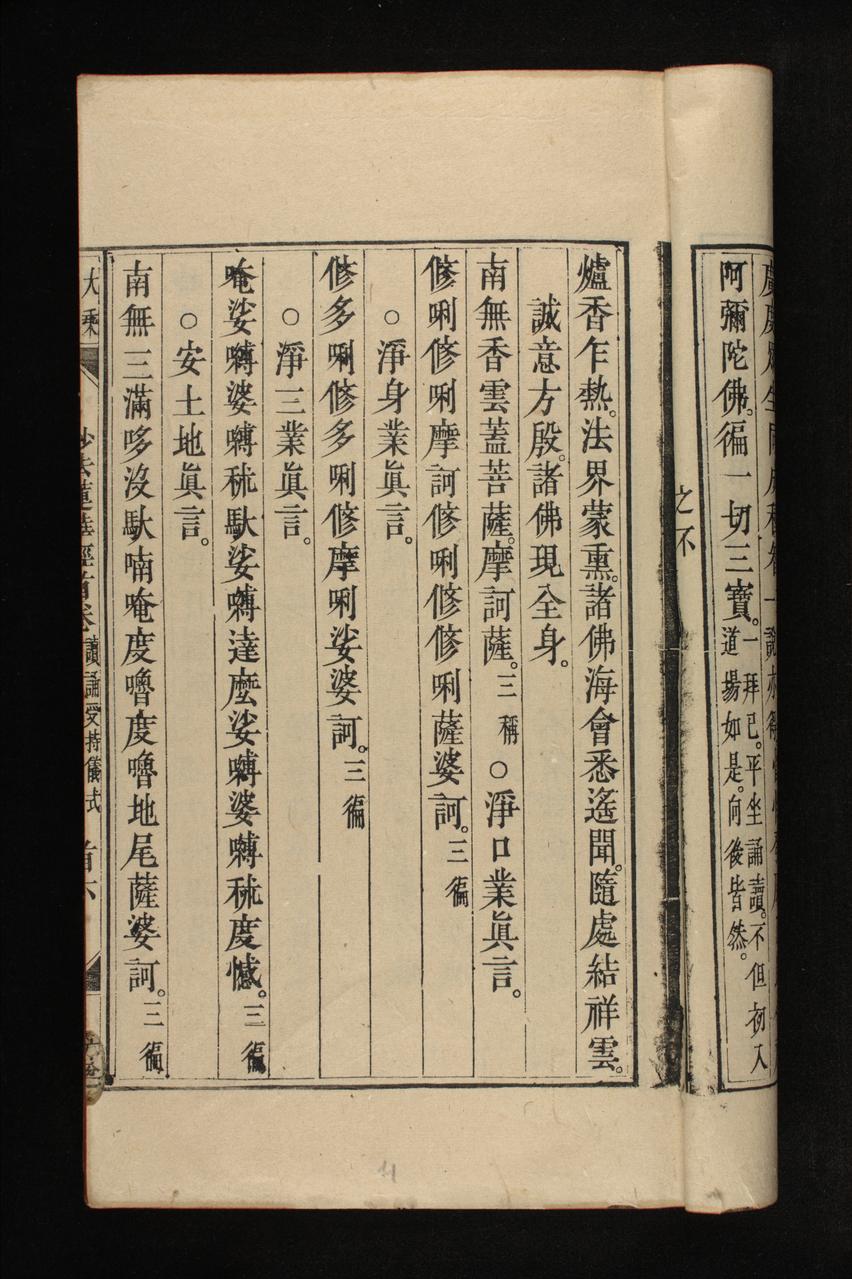 阿彌陀佛。徧一切三寶。一拜已。平坐誦讀。不但初入
道場如是。向後皆然。
之不
爐香乍熱。法界蒙熏。諸佛海會悉遙聞。隨處結祥雲。
誠意方殷。諸佛現全身。
南無香雲蓋菩薩。摩訶薩。三稱 ○淨口業眞言。
修唎修唎摩訶修唎修修唎薩婆訶。三徧
○淨身業眞言。
修多唎修多唎修摩唎娑婆訶。三徧
○淨三業眞言。
唵娑嚩婆嚩秫馱娑嚩達麼娑嚩婆嚩秫度憾。三徧
○安土地眞言。
南無三滿哆沒馱喃唵度嚕度嚕地尾薩婆訶。三徧
大乘 妙法蓮華經首卷 讀誦受持儀式 首六